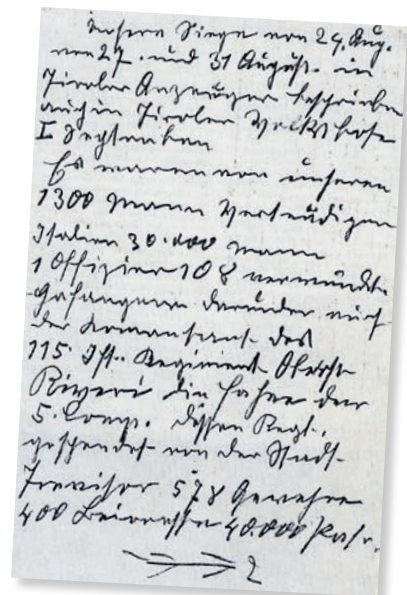 unsere Siege von 24. Aug.
von 27. und 31 August. in
Tiroler Anzeiger beschrieben
auch in Tiroler Volksbote
I September
Es waren von unseren
1300 Mann Verteidigen
Italien 30.000 Mann
1 Offizier 108 verwundete
Gefangene darunter auch
der Komandant des
115. Ift. Regiment Oberst
Riveri die Fahne der
5. Comp. dessen Regt.
gespendet von der Stadt
Trevisor 578 Gewehre
400 Beironette 40.000 Patr.
2